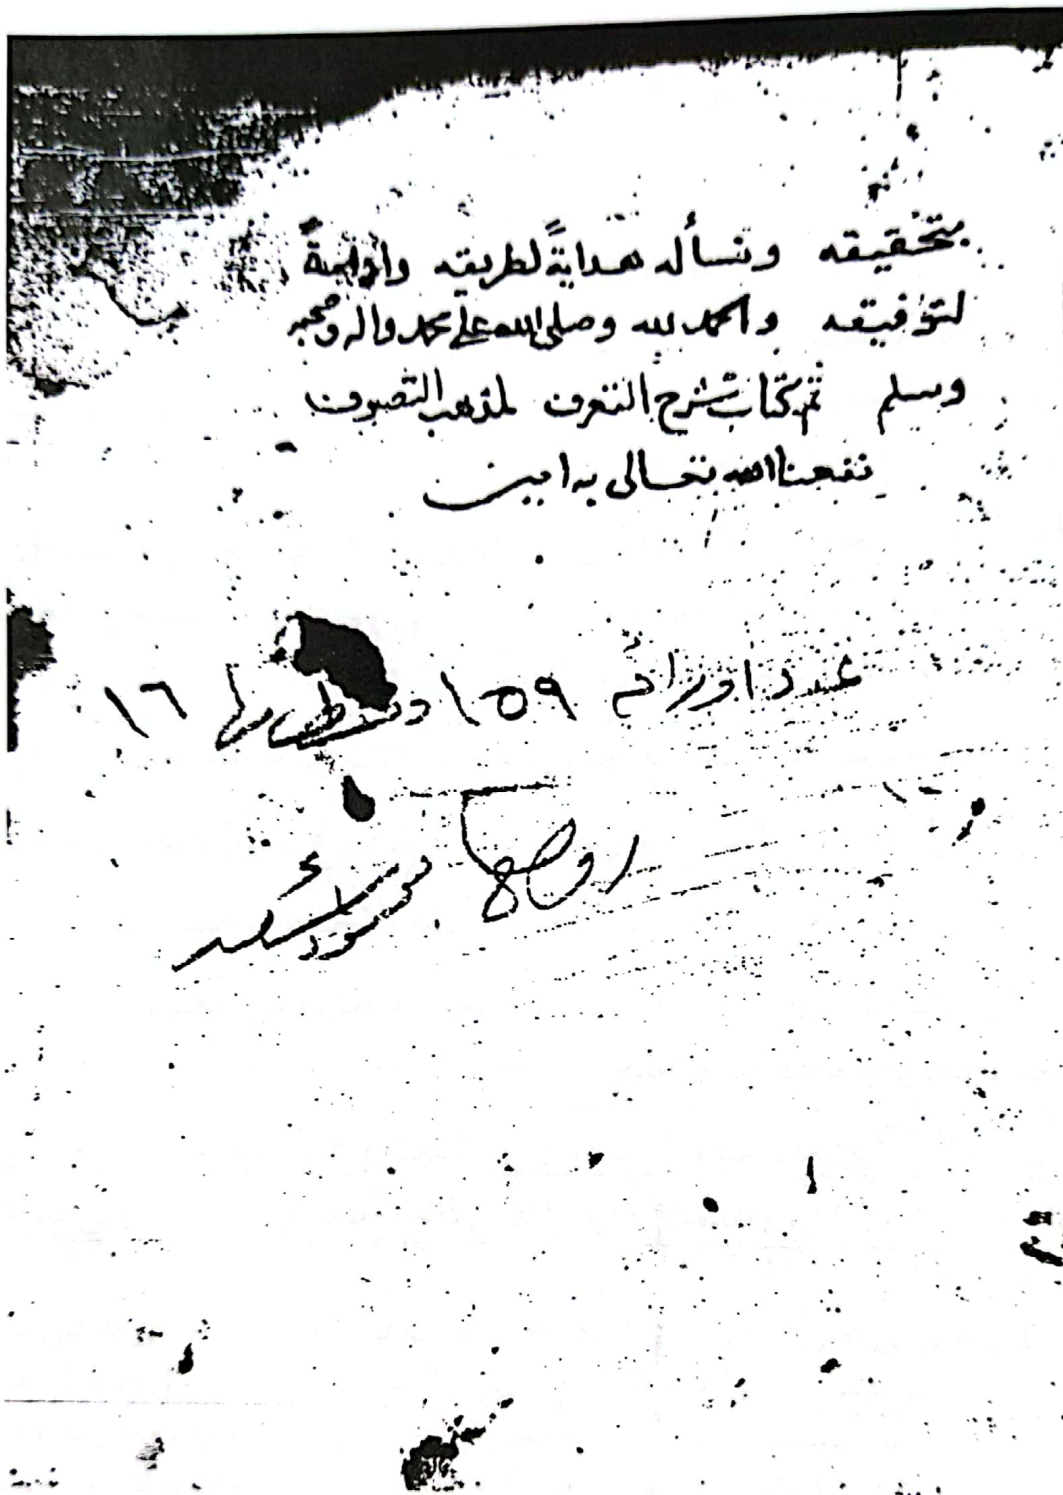 بتحقيقه ونسأله هدايةً لطريقه
لتوفيقه والحمد لله وصلى الله على محمد واله وصحبه
وسلم تم كتاب شرح التعرف لمذهب التصوف
نفعنا الله تعالى به امين
عدد اوراقه ١٥٩ ١٦